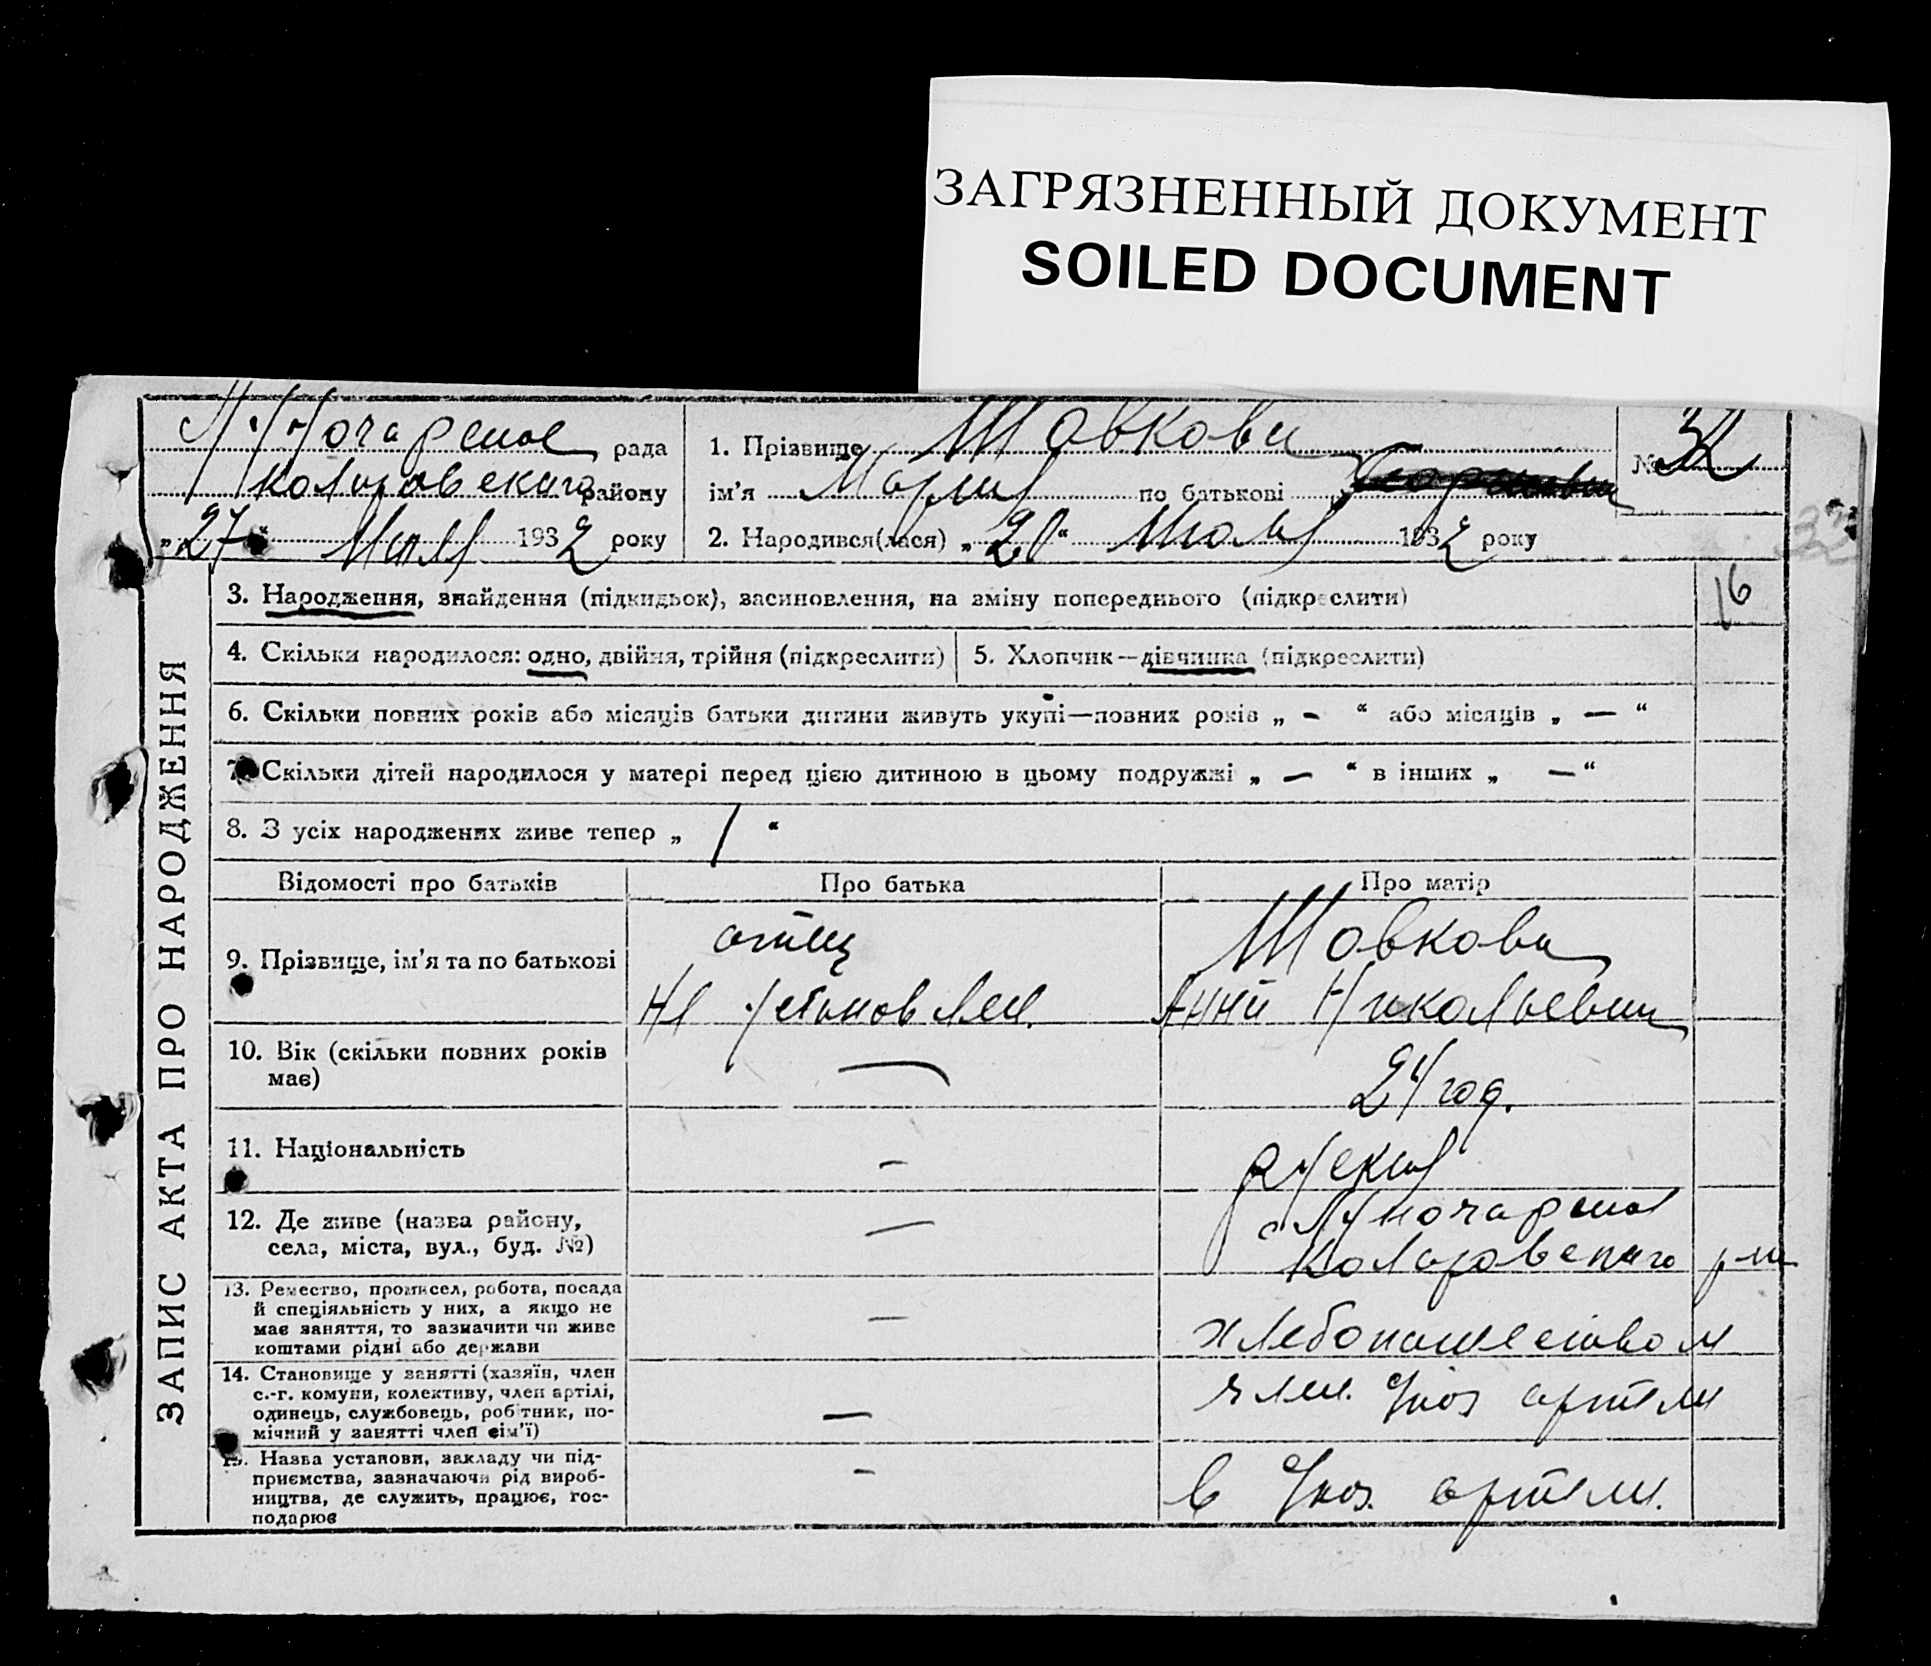 ЗАГРЯЗНЕННЫЙ ДОКУМЕНТ
SOILED DOCUMENT
ЗАПИС АКТА ПРО НАРОДЖЕННЯ
Луночарське рада
Коларовского району
„27“ Июля 1932 року
1. Прізвище Шовкова
ім'я Мария по батькові
№ 32
2. Народився(лася) „20“ Июля 1932 року
3. Народження, знайдення (підкидьок), засиновлення, на зміну попереднього (підкреслити)
16
4. Скільки народилося: одно, двійня, трійня (підкреслити) 5. Хлопчик—дівчинка (підкреслити)
6. Скільки повних років або місяців батьки дитини живуть укупі—повних років „ — “ або місяців „ — “
7. Скільки дітей народилося у матері перед цією дитиною в цьому подружжі „ — “ в інших „ — “
8. З усіх народжених живе тепер „ 1 “
Відомості про батьків Про батька Про матір
9. Прізвище, ім'я та по батькові
отец
не установлен.
Шовкова
Анна Никольевна
10. Вік (скільки повних років
має)
—
24 год.
11. Національність
—
руская
12. Де живе (назва району,
села, міста, вул., буд. №)
—
с Луночарское
Коларовского р-на
13. Ремество, промисел, робота, посада
й спеціяльність у них, а якщо не
має заняття, то зазначити чи живе
коштами рідні або держави
—
хлебопашеством
14. Становище у занятті (хазяїн, член
с.-г. комуни, колективу, член артілі,
одинець, службовець, робітник, по-
мічний у занятті член сім'ї)
—
член. артели
15. Назва установи, закладу чи під-
приємства, зазначаючи рід вироб-
ництва, де служить, працює, гос-
подарює
—
в артели.